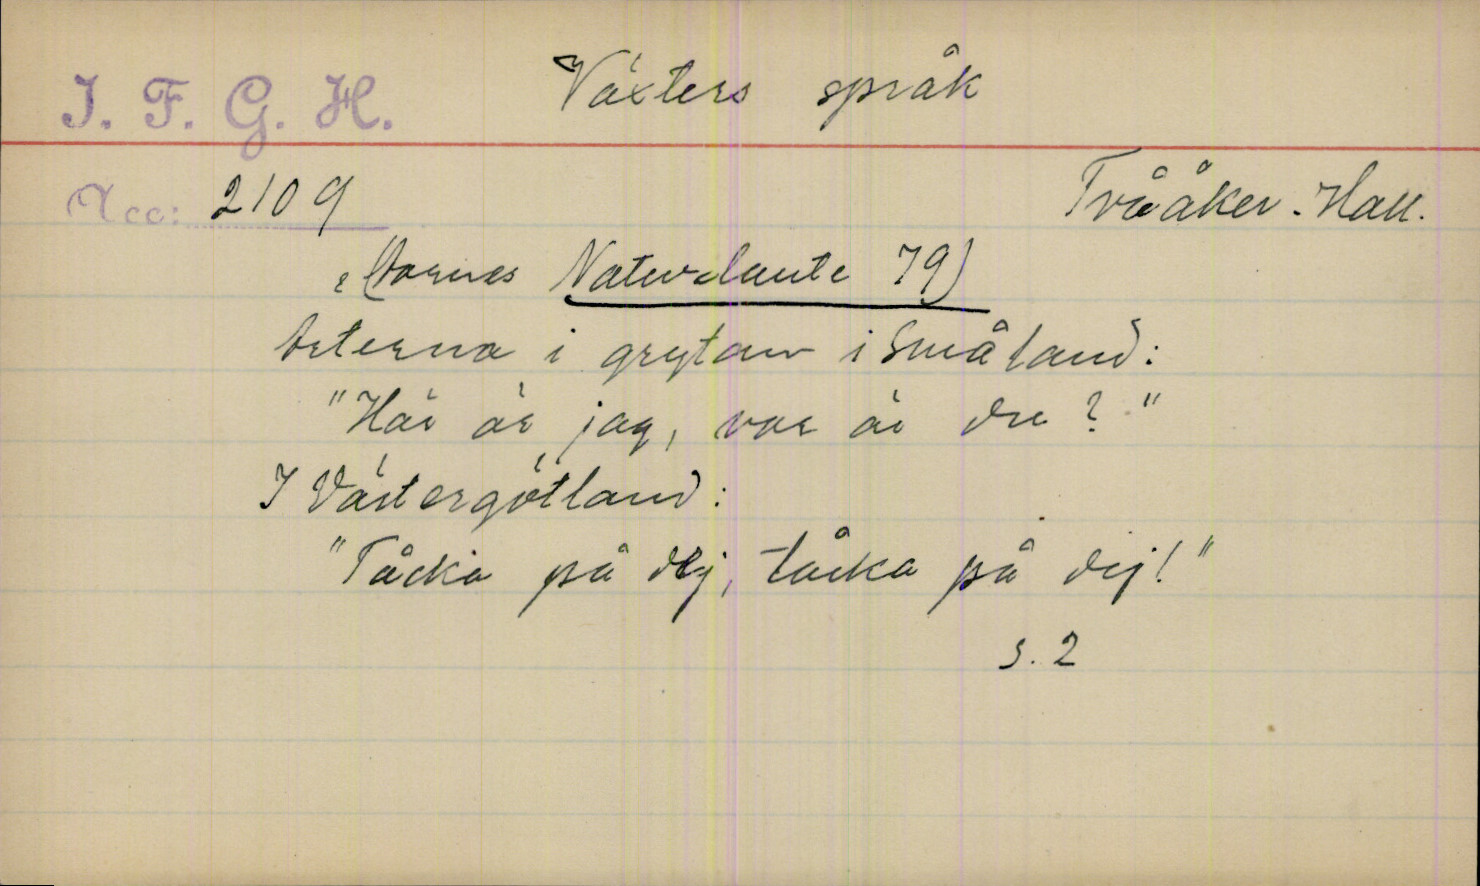 I. F. G. H.
Växters språk
Acc: 2109
Tvååker. Hall.
Naturlaute 79)
Ärterna i grytan i Småland:
"Här är jag, var är du?"
I Västergötland:
"Tåcka på dej, tåcka på dej!"
s. 2